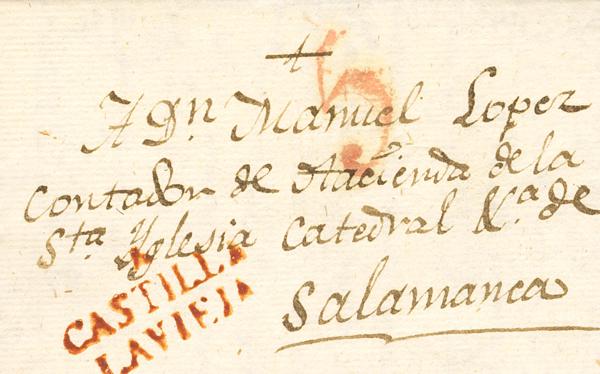 5
A Dn Manuel Lopez
Contador de Hacienda de la
Sta Yglesia Catedral &.a de
Salamanca
CASTILLA
LA VIEJA